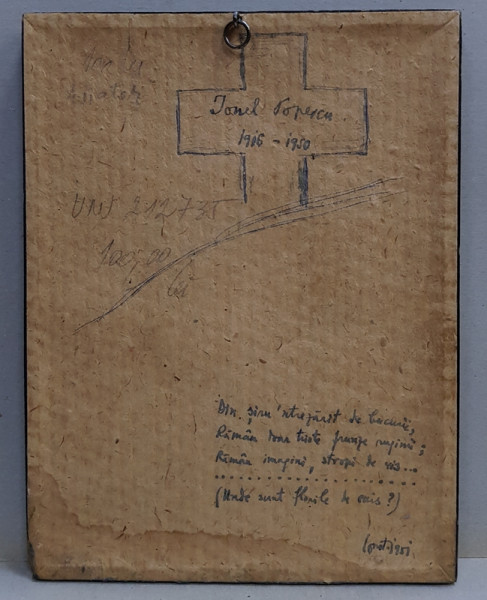 Ionel Popescu
1916 - 1950
212735
100,00
lei
Din șiru 'ntrezărit de bucurii,
Rămân doar triste frunze ruginii;
Rămân imagini, stropi de vis...
(Unde sunt florile de cais?)
1951